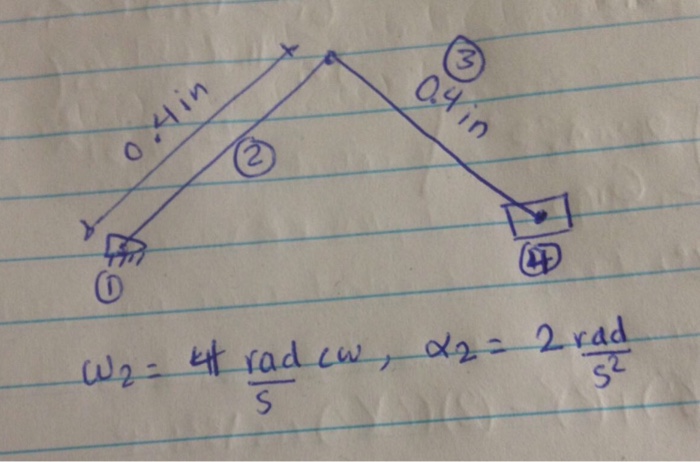 ③
0.4 in
0.4 in
②
①
④
ω₂ = 4 rad/s cw, α₂ = 2 rad/s²